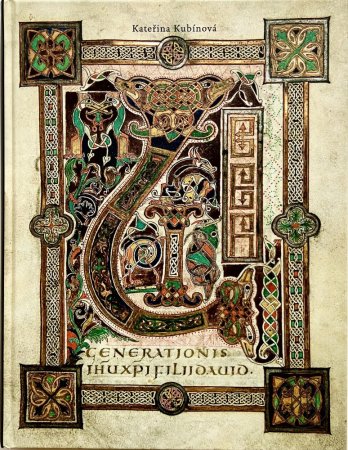 Kateřina Kubínová
GENERATIONIS
IHUXPIFILIIDAUID.